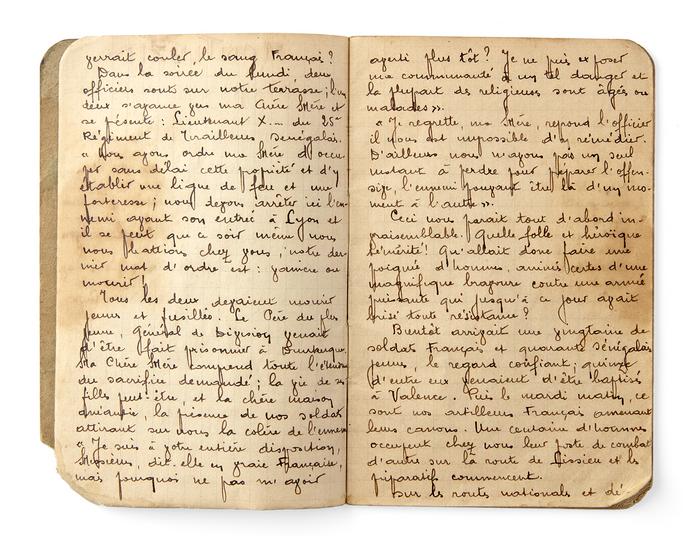 verrait couler, le sang Français?
Dans la soirée du lundi, deux
officiers sont sur notre terrasse; l'un
deux s'avance vers ma Chère Mère et
se présente : Lieutenant X... du 25e
Régiment de Tirailleurs Sénégalais.
« Nous avons ordre ma Mère d'occu-
per sans délai cette propriété et d'y
établir une ligne de feu et une
forteresse; nous devons arrêter ici l'en-
nemi avant son entrée à Lyon et
il se peut que ce soir même nous
nous battions chez vous, notre der-
nier mot d'ordre est : vaincre ou
mourir!
Tous les deux devaient mourir
jeunes et fusillés. Le Père du plus
jeune, Général de Division venait
d'être fait prisonnier à Dunkerque.
Ma Chère Mère comprend toute l'étendue
du sacrifice demandé; la vie de ses
filles peut-être, et la chère maison
anéantie, la présence de nos soldats
attirant sur nous la colère de l'ennemi
« Je suis à votre entière disposition,
Messieurs, dit-elle en vraie Française,
mais pourquoi ne pas m'avoir
averti plus tôt? Je ne puis exposer
ma communauté à un tel danger et
la plupart des religieuses sont âgées ou
malades ».
« Je regrette, ma Mère, répond l'officier
il nous est impossible d'y remédier.
D'ailleurs nous n'avons pas un seul
instant à perdre pour préparer l'offen-
sive, l'ennemi pouvant être là d'un mo-
ment à l'autre ».
Ceci nous paraît tout d'abord in-
vraisemblable. Quelle folle et héroïque
témérité! Qu'allait donc faire une
poignée d'hommes, animés certes d'une
magnifique bravoure contre une armée
puissante qui jusqu'à ce jour avait
brisé toute résistance?
Bientôt arrivait une vingtaine de
soldats Français et quarante Sénégalais
jeunes, le regard confiant; quinze
d'entre eux venaient d'être baptisés
à Valence. Puis le mardi matin, ce
sont nos artilleurs Français amenant
leurs canons. Une centaine d'hommes
occupent chez nous leur poste de combat
d'autre sur la route de Lissieu et les
préparatifs commencent.
Sur les routes nationales et dé-